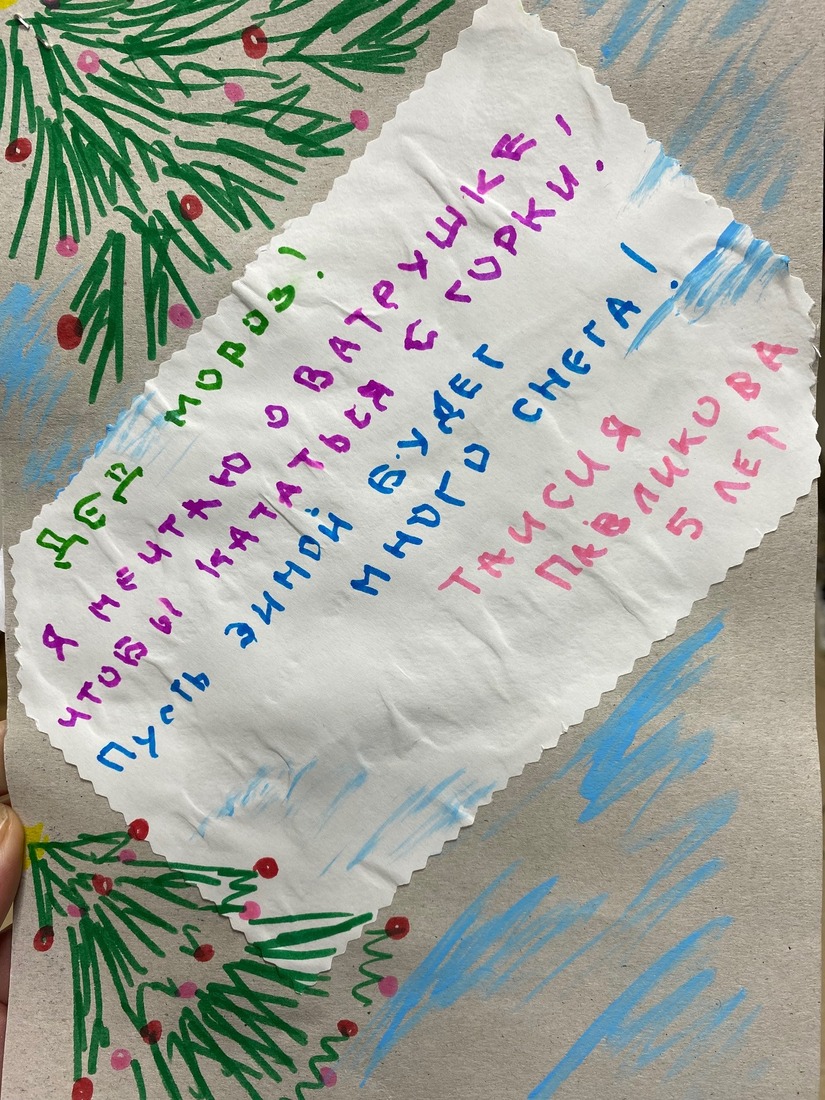 ДЕД МОРОЗ!
Я МЕЧТАЮ О ВАТРУШКЕ,
ЧТОБЫ КАТАТЬСЯ С ГОРКИ.
ПУСТЬ ЗИМОЙ БУДЕТ
МНОГО СНЕГА!
ТАИСИЯ
ПАВЛИКОВА
5 ЛЕТ